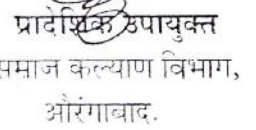 प्रादेशिक उपायुक्त
समाज कल्याण विभाग,
औरंगाबाद.